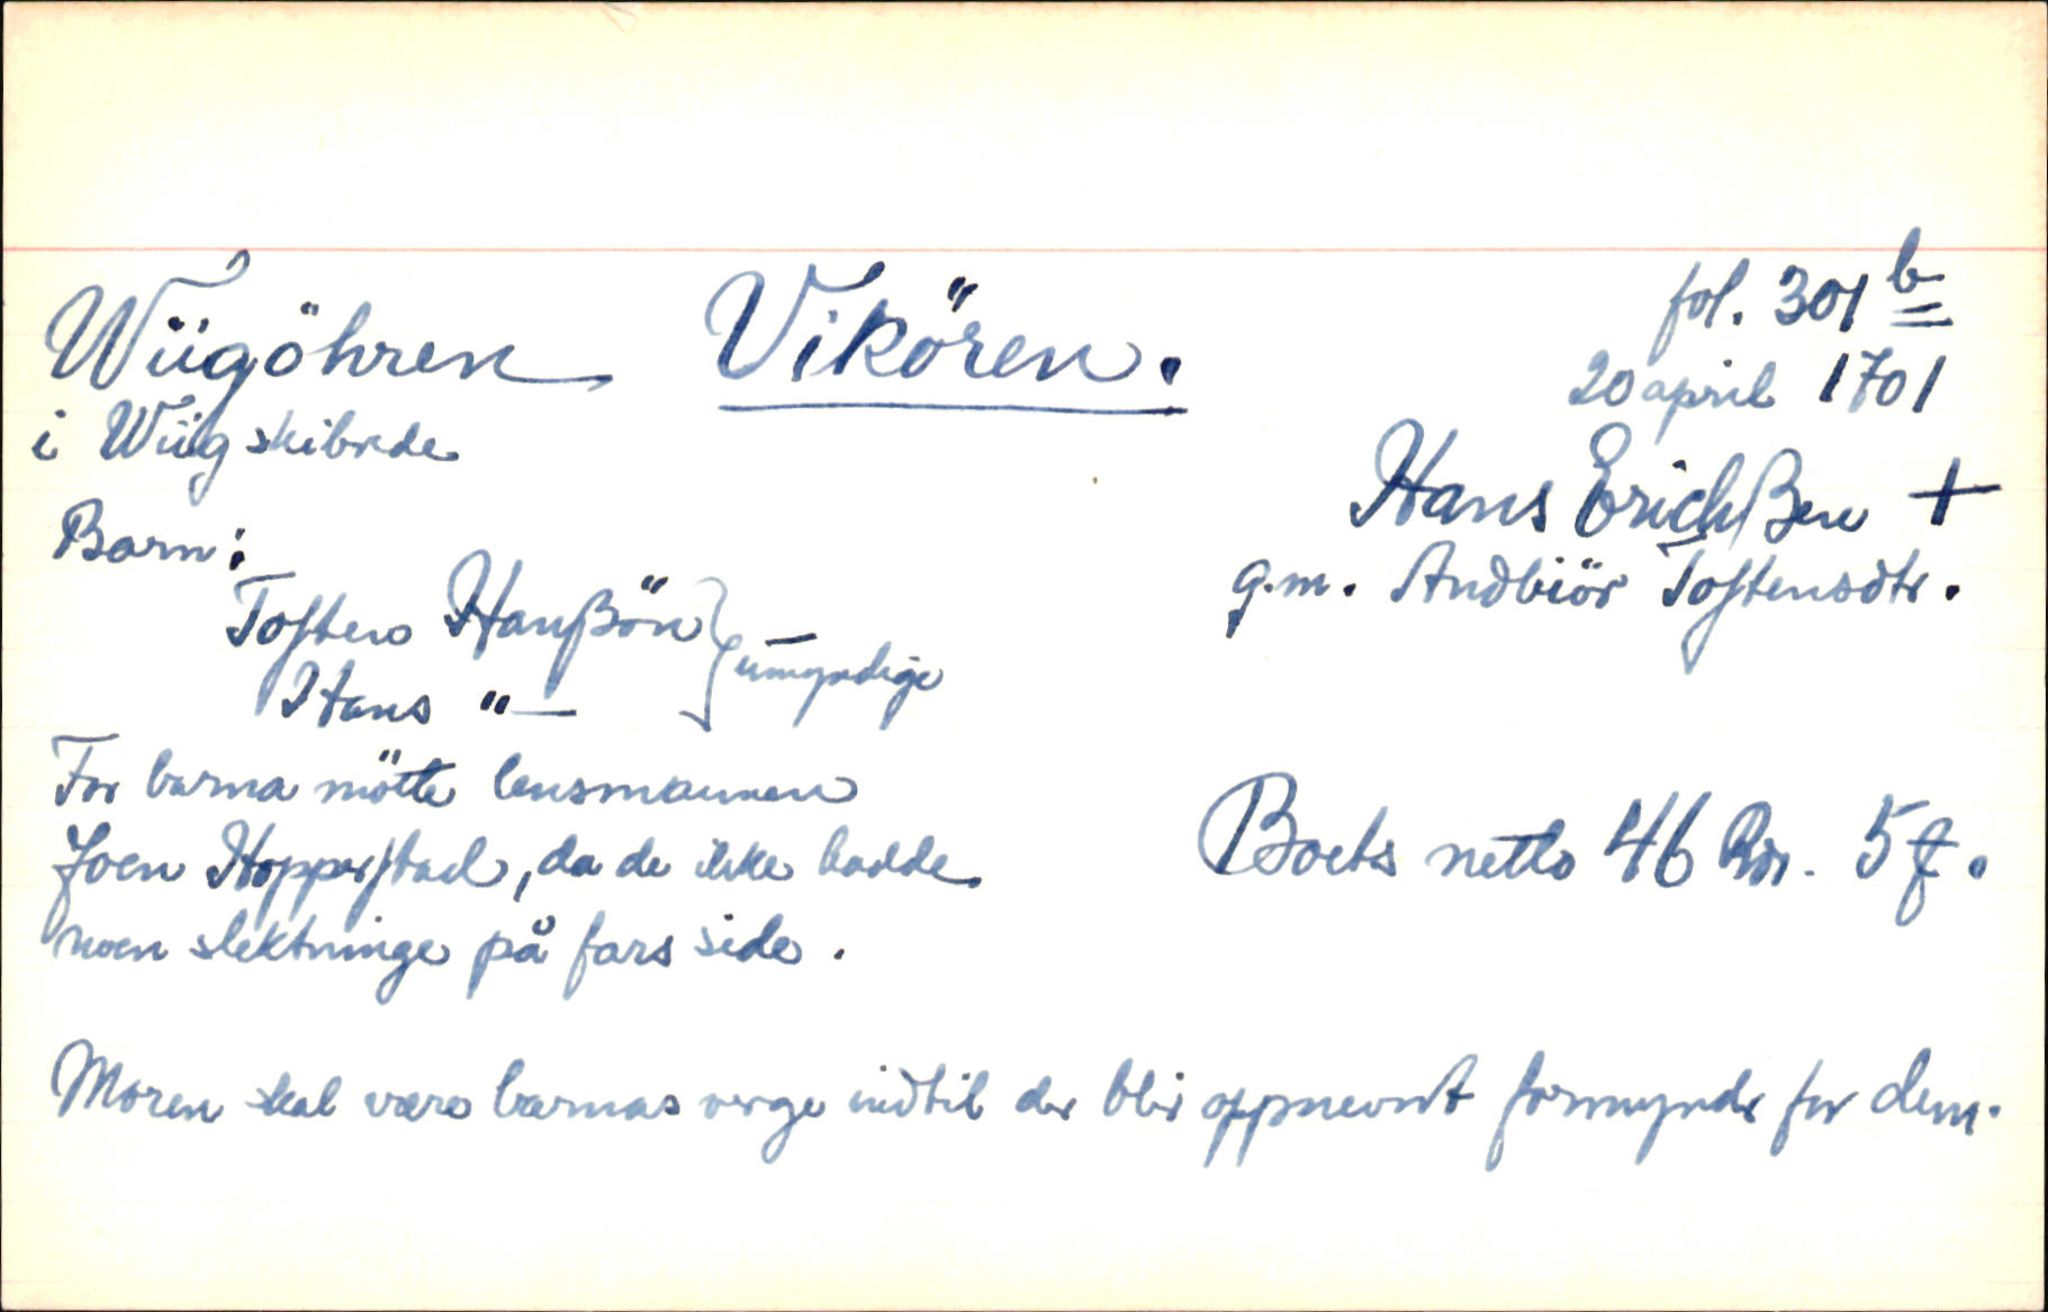 Wügöhren Vikören. fol. 301 b
i Wüg skibrede 20 april 1701
Hans Erichßen +
g.m. Andbiör Tostensdtr.
Barn:
Tosten Hanßön } umyndige
Hans "—
For barna mötte lensmannen
Joen Hopperstad, da de ikke hadde
noen slektninge på fars side.
Boets netto 46 Rdr. 5 ƒ.
Moren skal være barnas verge indtil der blir oppnevnt formynder for dem.